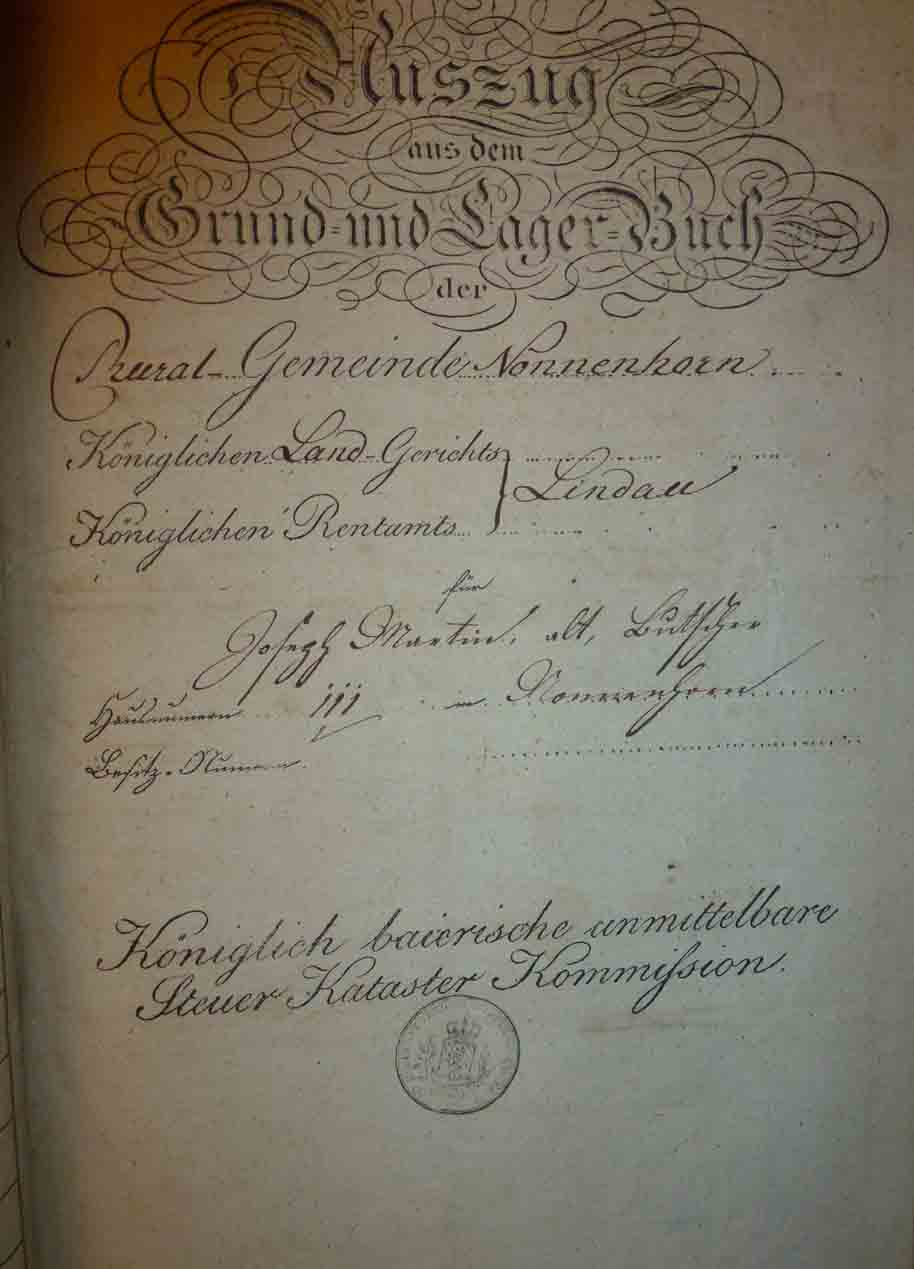 Auszug
aus dem
Grund- und Lager-Buch
der
Rural-Gemeinde Nonnenhorn
Königlichen Land-Gerichts
Lindau
Königlichen Rentamts
für
Joseph Martin, alt, Butscher
Hausnumern in Nonnenhorn
Besitz-Numern
Königlich baierische unmittelbare
Steuer Kataster Kommission.